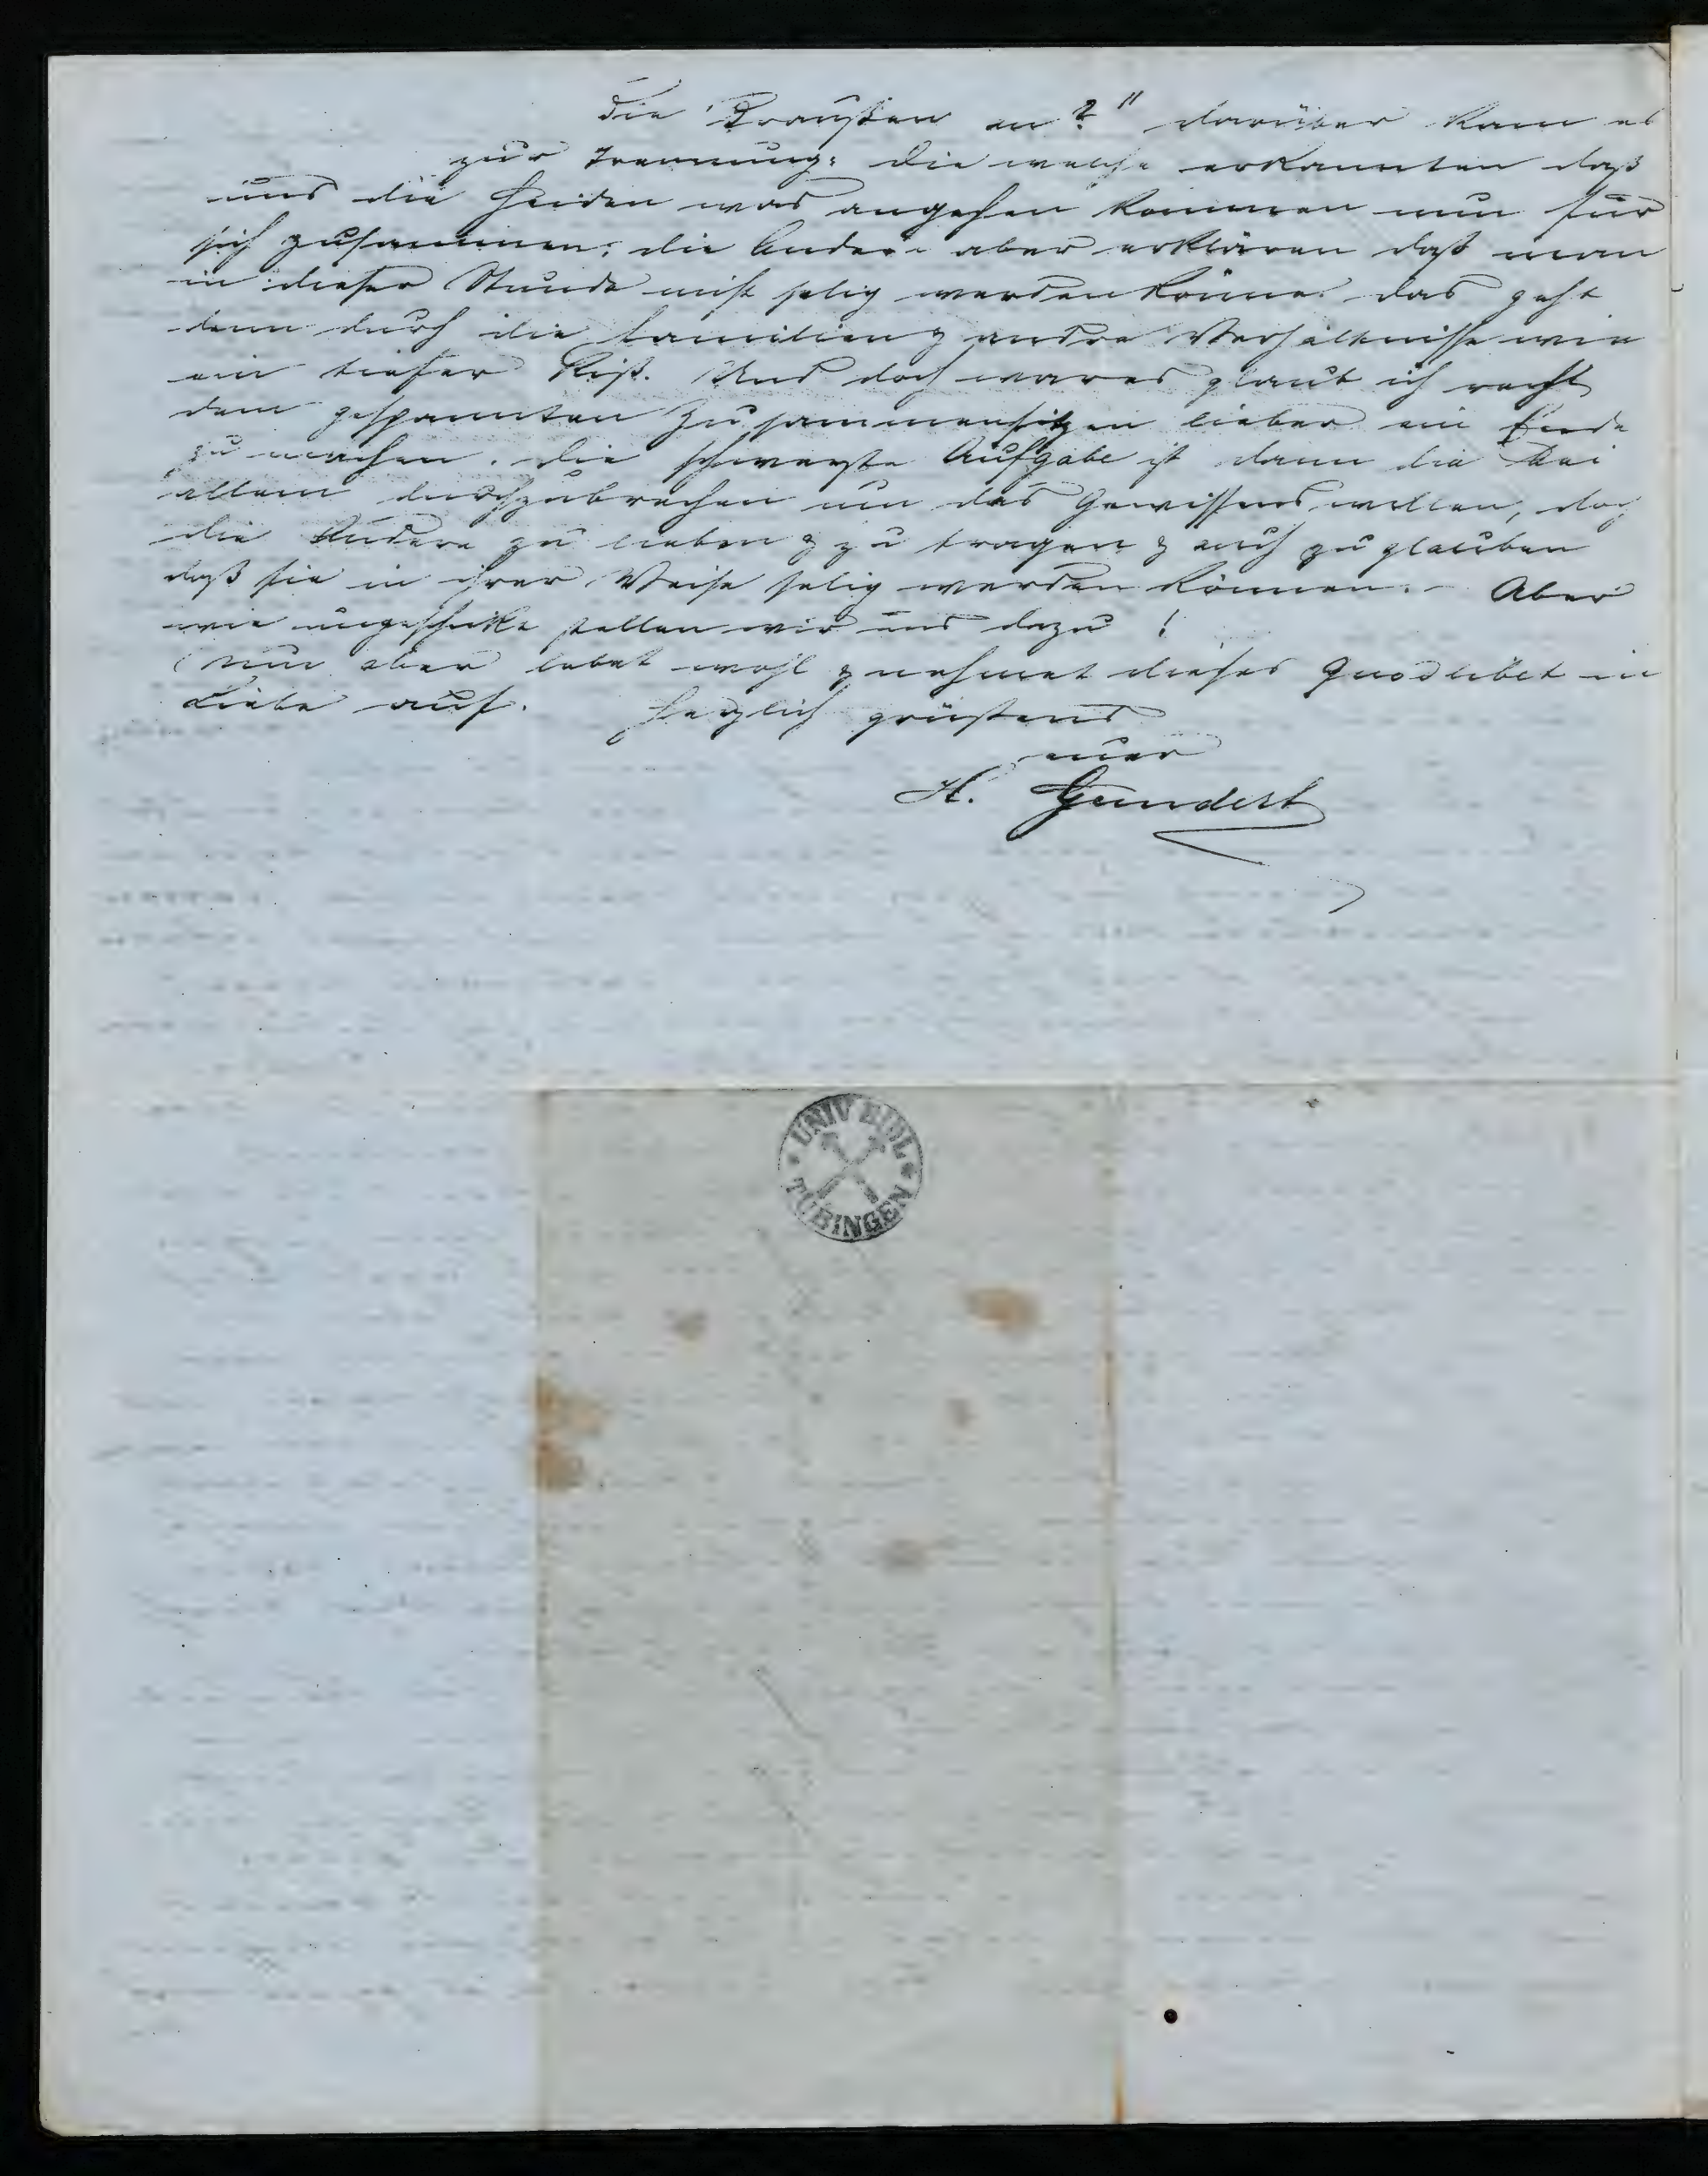 die Draußen an?" darüber kam es
zur Trennung: die welche erkannten daß
uns die Heiden was angehen kommen nun für
sich zusammen: die Andern aber erklären daß man
in dieser Stunde nicht selig werden könne. das geht
denn durch die Familien & andre Verhältnisse wie
ein tiefer Riß. Und doch war es glaub ich recht
dem gespannten Zusammensitzen lieber ein Ende
zu machen. die schwerste Aufgabe ist dann die bei
allem durchzubrechen um des Gewissens willen, doch
die Andere zu lieben & zu tragen & auch zu glauben
daß sie in ihrer Weise selig werden können. - Aber
wie ungeschickt stellen wir uns dazu!
Nun aber lebet wohl & nehmet dieses Quodlibet in
Liebe auf. Herzlich grüßend
euer
H. Gundert
UNIV BIBL
TÜBINGEN